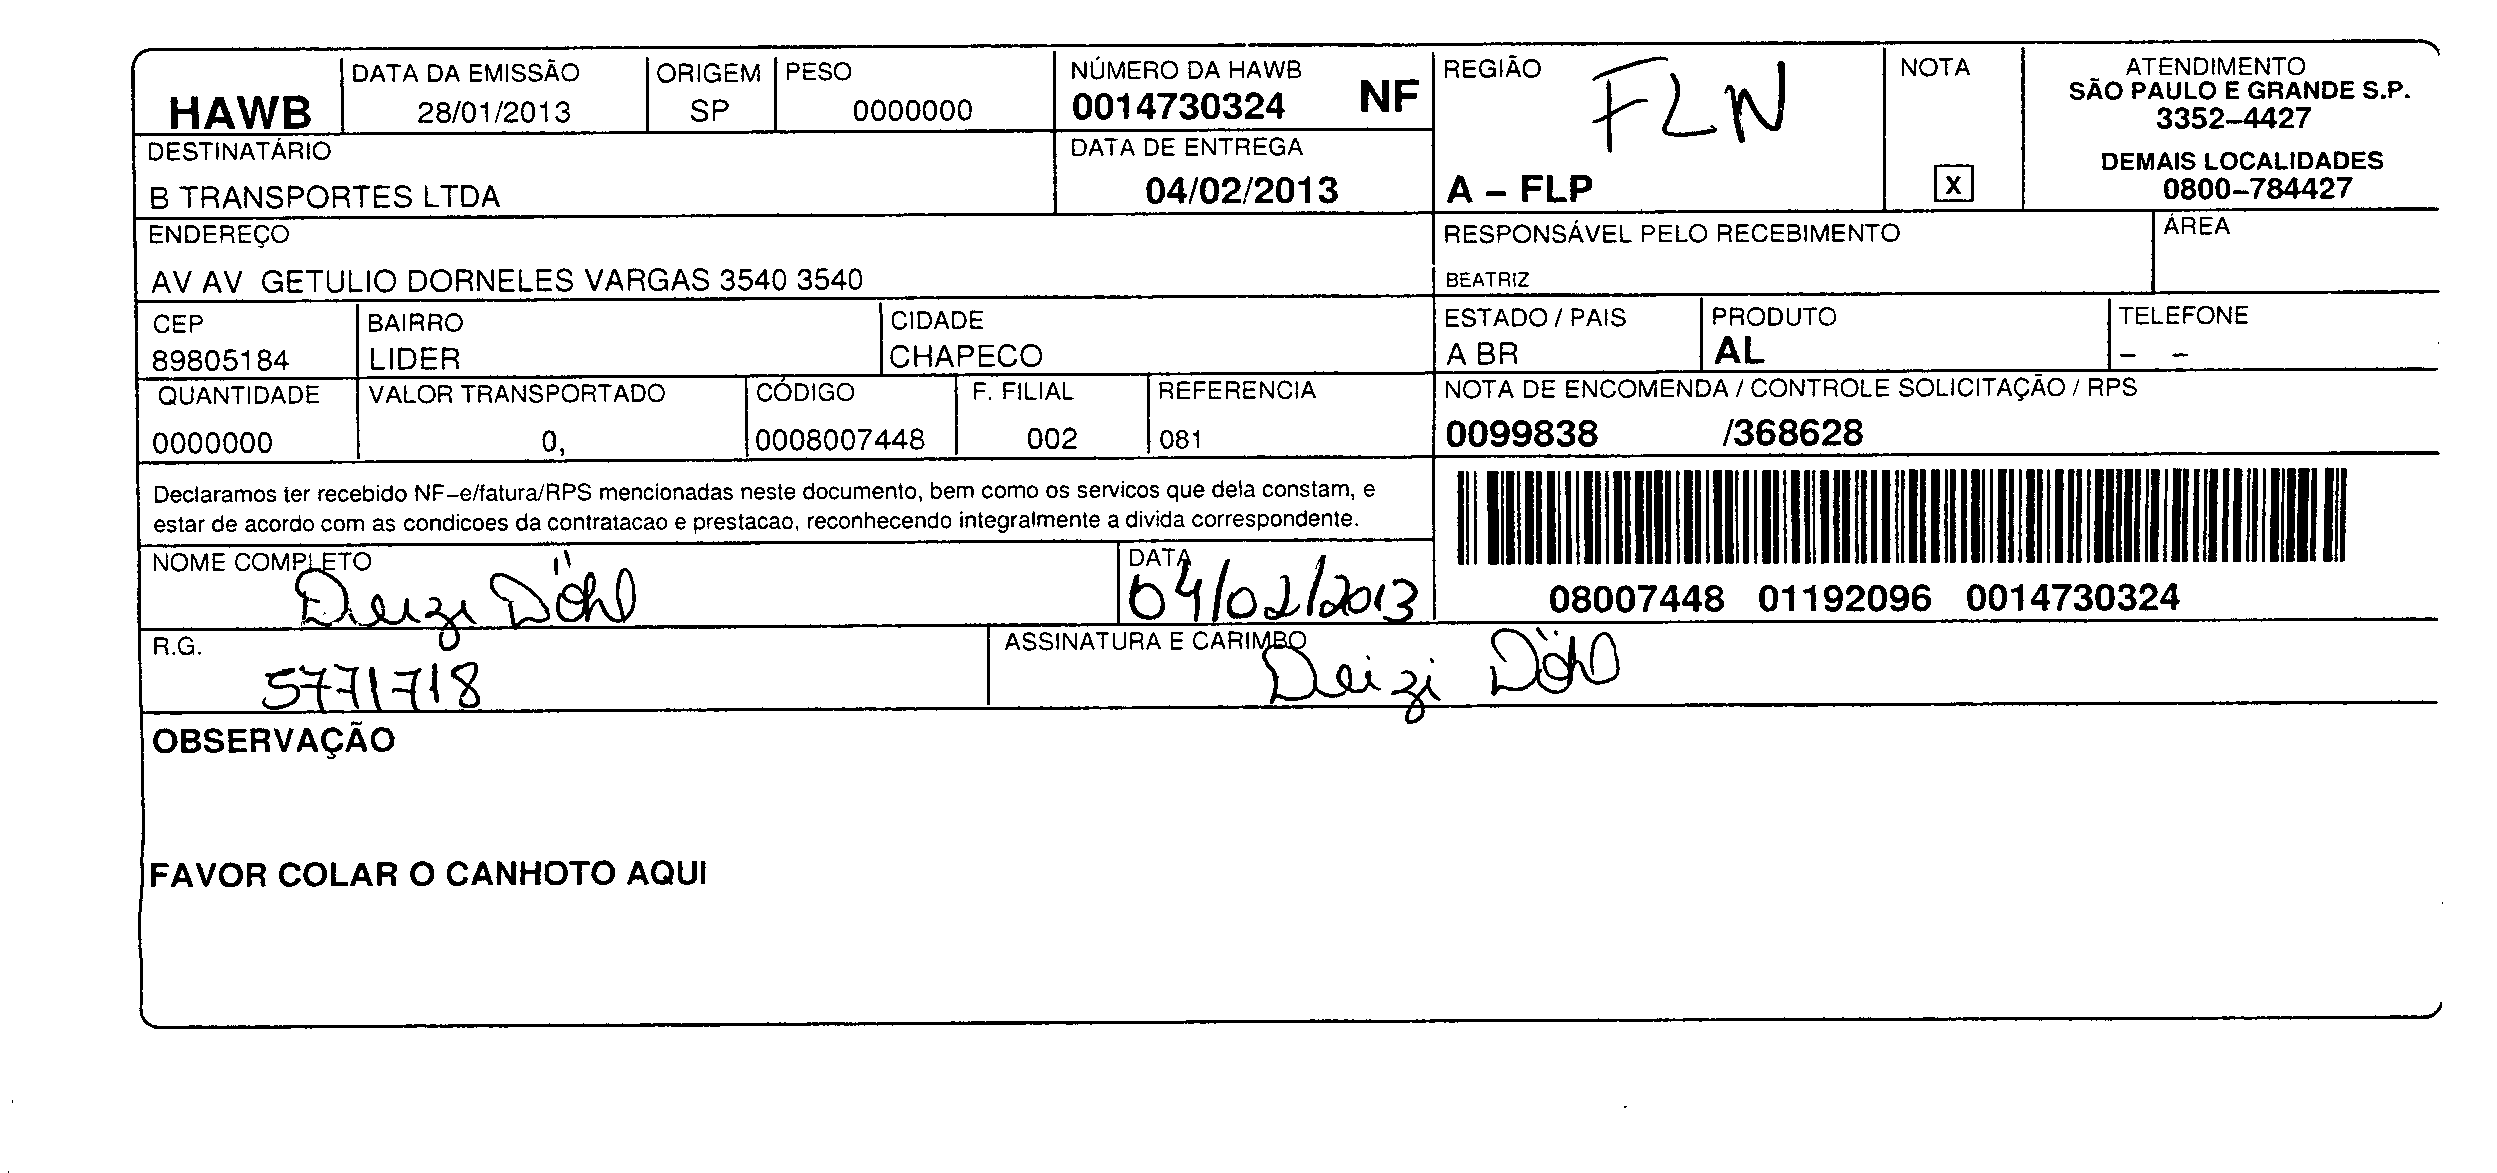 HAWB
DATA DA EMISSÃO
28/01/2013
ORIGEM
SP
PESO
0000000
NÚMERO DA HAWB
0014730324 NF
REGIÃO
FLN
A – FLP
NOTA
X
ATENDIMENTO
SÃO PAULO E GRANDE S.P.
3352–4427
DEMAIS LOCALIDADES
0800–784427
DESTINATÁRIO
B TRANSPORTES LTDA
DATA DE ENTREGA
04/02/2013
ENDEREÇO
AV AV GETULIO DORNELES VARGAS 3540 3540
RESPONSÁVEL PELO RECEBIMENTO
BEATRIZ
ÁREA
CEP
89805184
BAIRRO
LIDER
CIDADE
CHAPECO
ESTADO / PAIS
A BR
PRODUTO
AL
TELEFONE
– –
QUANTIDADE
0000000
VALOR TRANSPORTADO
0,
CÓDIGO
0008007448
F. FILIAL
002
REFERENCIA
081
NOTA DE ENCOMENDA / CONTROLE SOLICITAÇÃO / RPS
0099838 /368628
Declaramos ter recebido NF–e/fatura/RPS mencionadas neste documento, bem como os servicos que dela constam, e
estar de acordo com as condicoes da contratacao e prestacao, reconhecendo integralmente a divida correspondente.
08007448 01192096 0014730324
NOME COMPLETO
Deizi Döhl
DATA
04/02/2013
R.G.
5771718
ASSINATURA E CARIMBO
Deizi Döhl
OBSERVAÇÃO
FAVOR COLAR O CANHOTO AQUI